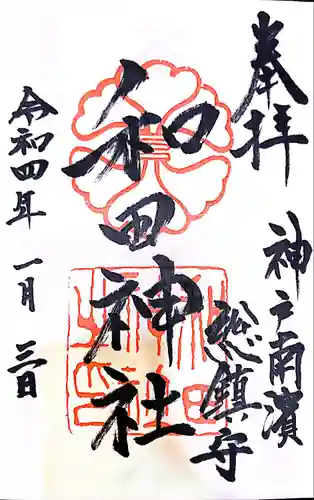 奉拝
神戸南濱
総鎮守
和田神社
令和四年
一月
三日